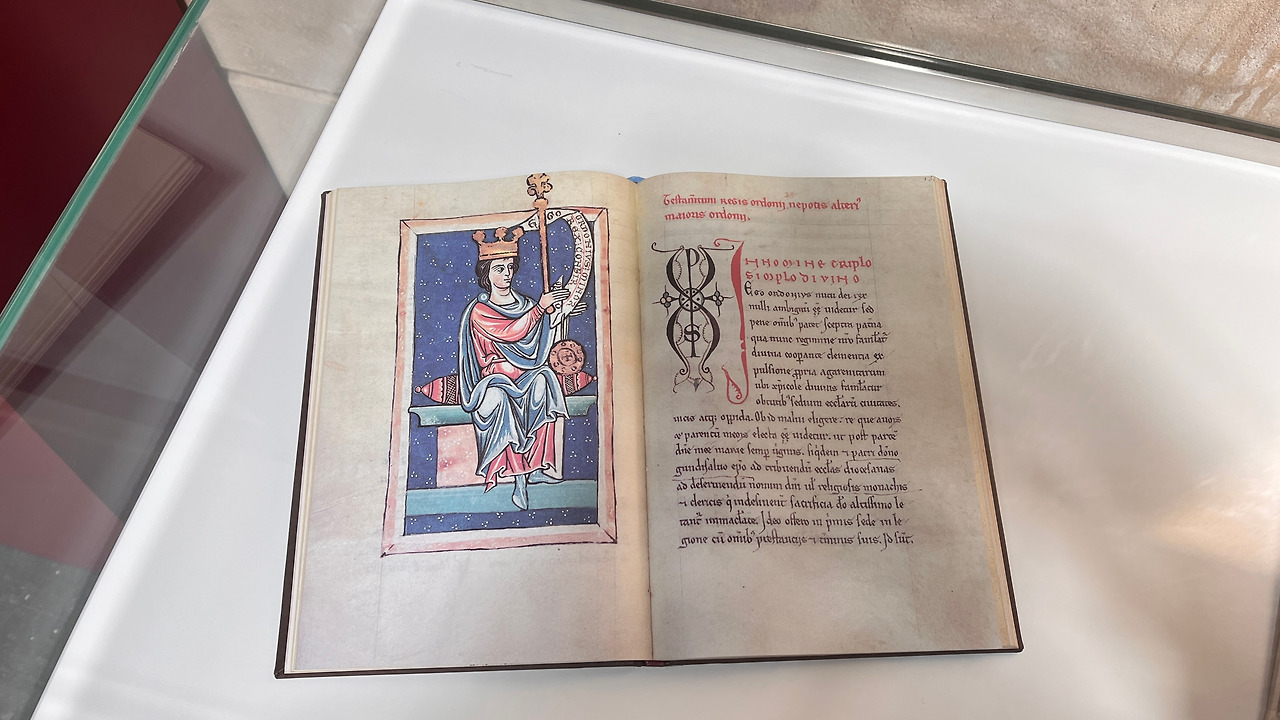 EGO ORDONIUS
Testam̄tum regis ordonij nepotis alteri᾽
maioris ordonij.
IN NOMINE TRIPLO
SIMPLO DIVINO
Ego ordonius nutu dei rex
nulli ambiguū ēē uidetur sed
pene omīb᾽ patet sceptra patria
qua nunc regimine nr̄o famulat᾽
diuina cooperante clementia ex
pulsione ꝓpria agarenitarum
ubi xp̄icole diuinis famulatur
obtutib᾽ sedium eccl̄arū ciuitates.
uicio atq; oppida. Ob id malui eligere. re que auois
ꝛ parentū meois electa ēē uidetur. ut post partē
dn̄e mee marie semp uiginis. siq̄dem ⁊ patri dōno
gundisaluo ep̄o ad tribuendū ecclas diocesanas
ad deseruiendū nomini dn̄i ul᾽ religiosis monachis
⁊ clericis q̇ indesinent᾽ sacrificia dō altissimo le
tant᾽ inmaclāte. Ideo offero in p̄mis sede in le
gione cū omīb᾽ prestanciis ⁊ t̄minus suis. Id sūt.